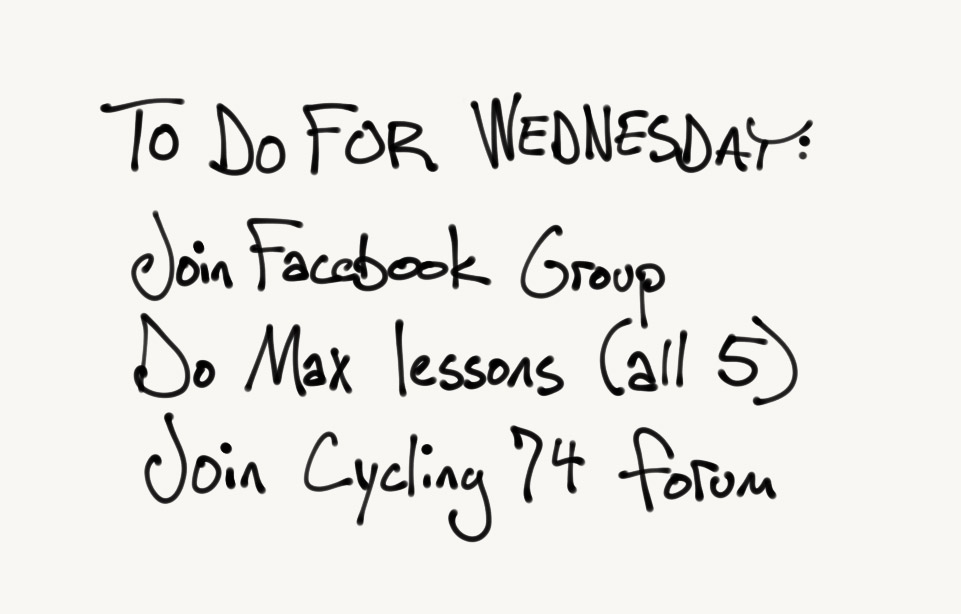 To Do For WEDNESDAY:
Join Facebook Group
Do Max lessons (all 5)
Join Cycling 74 forum